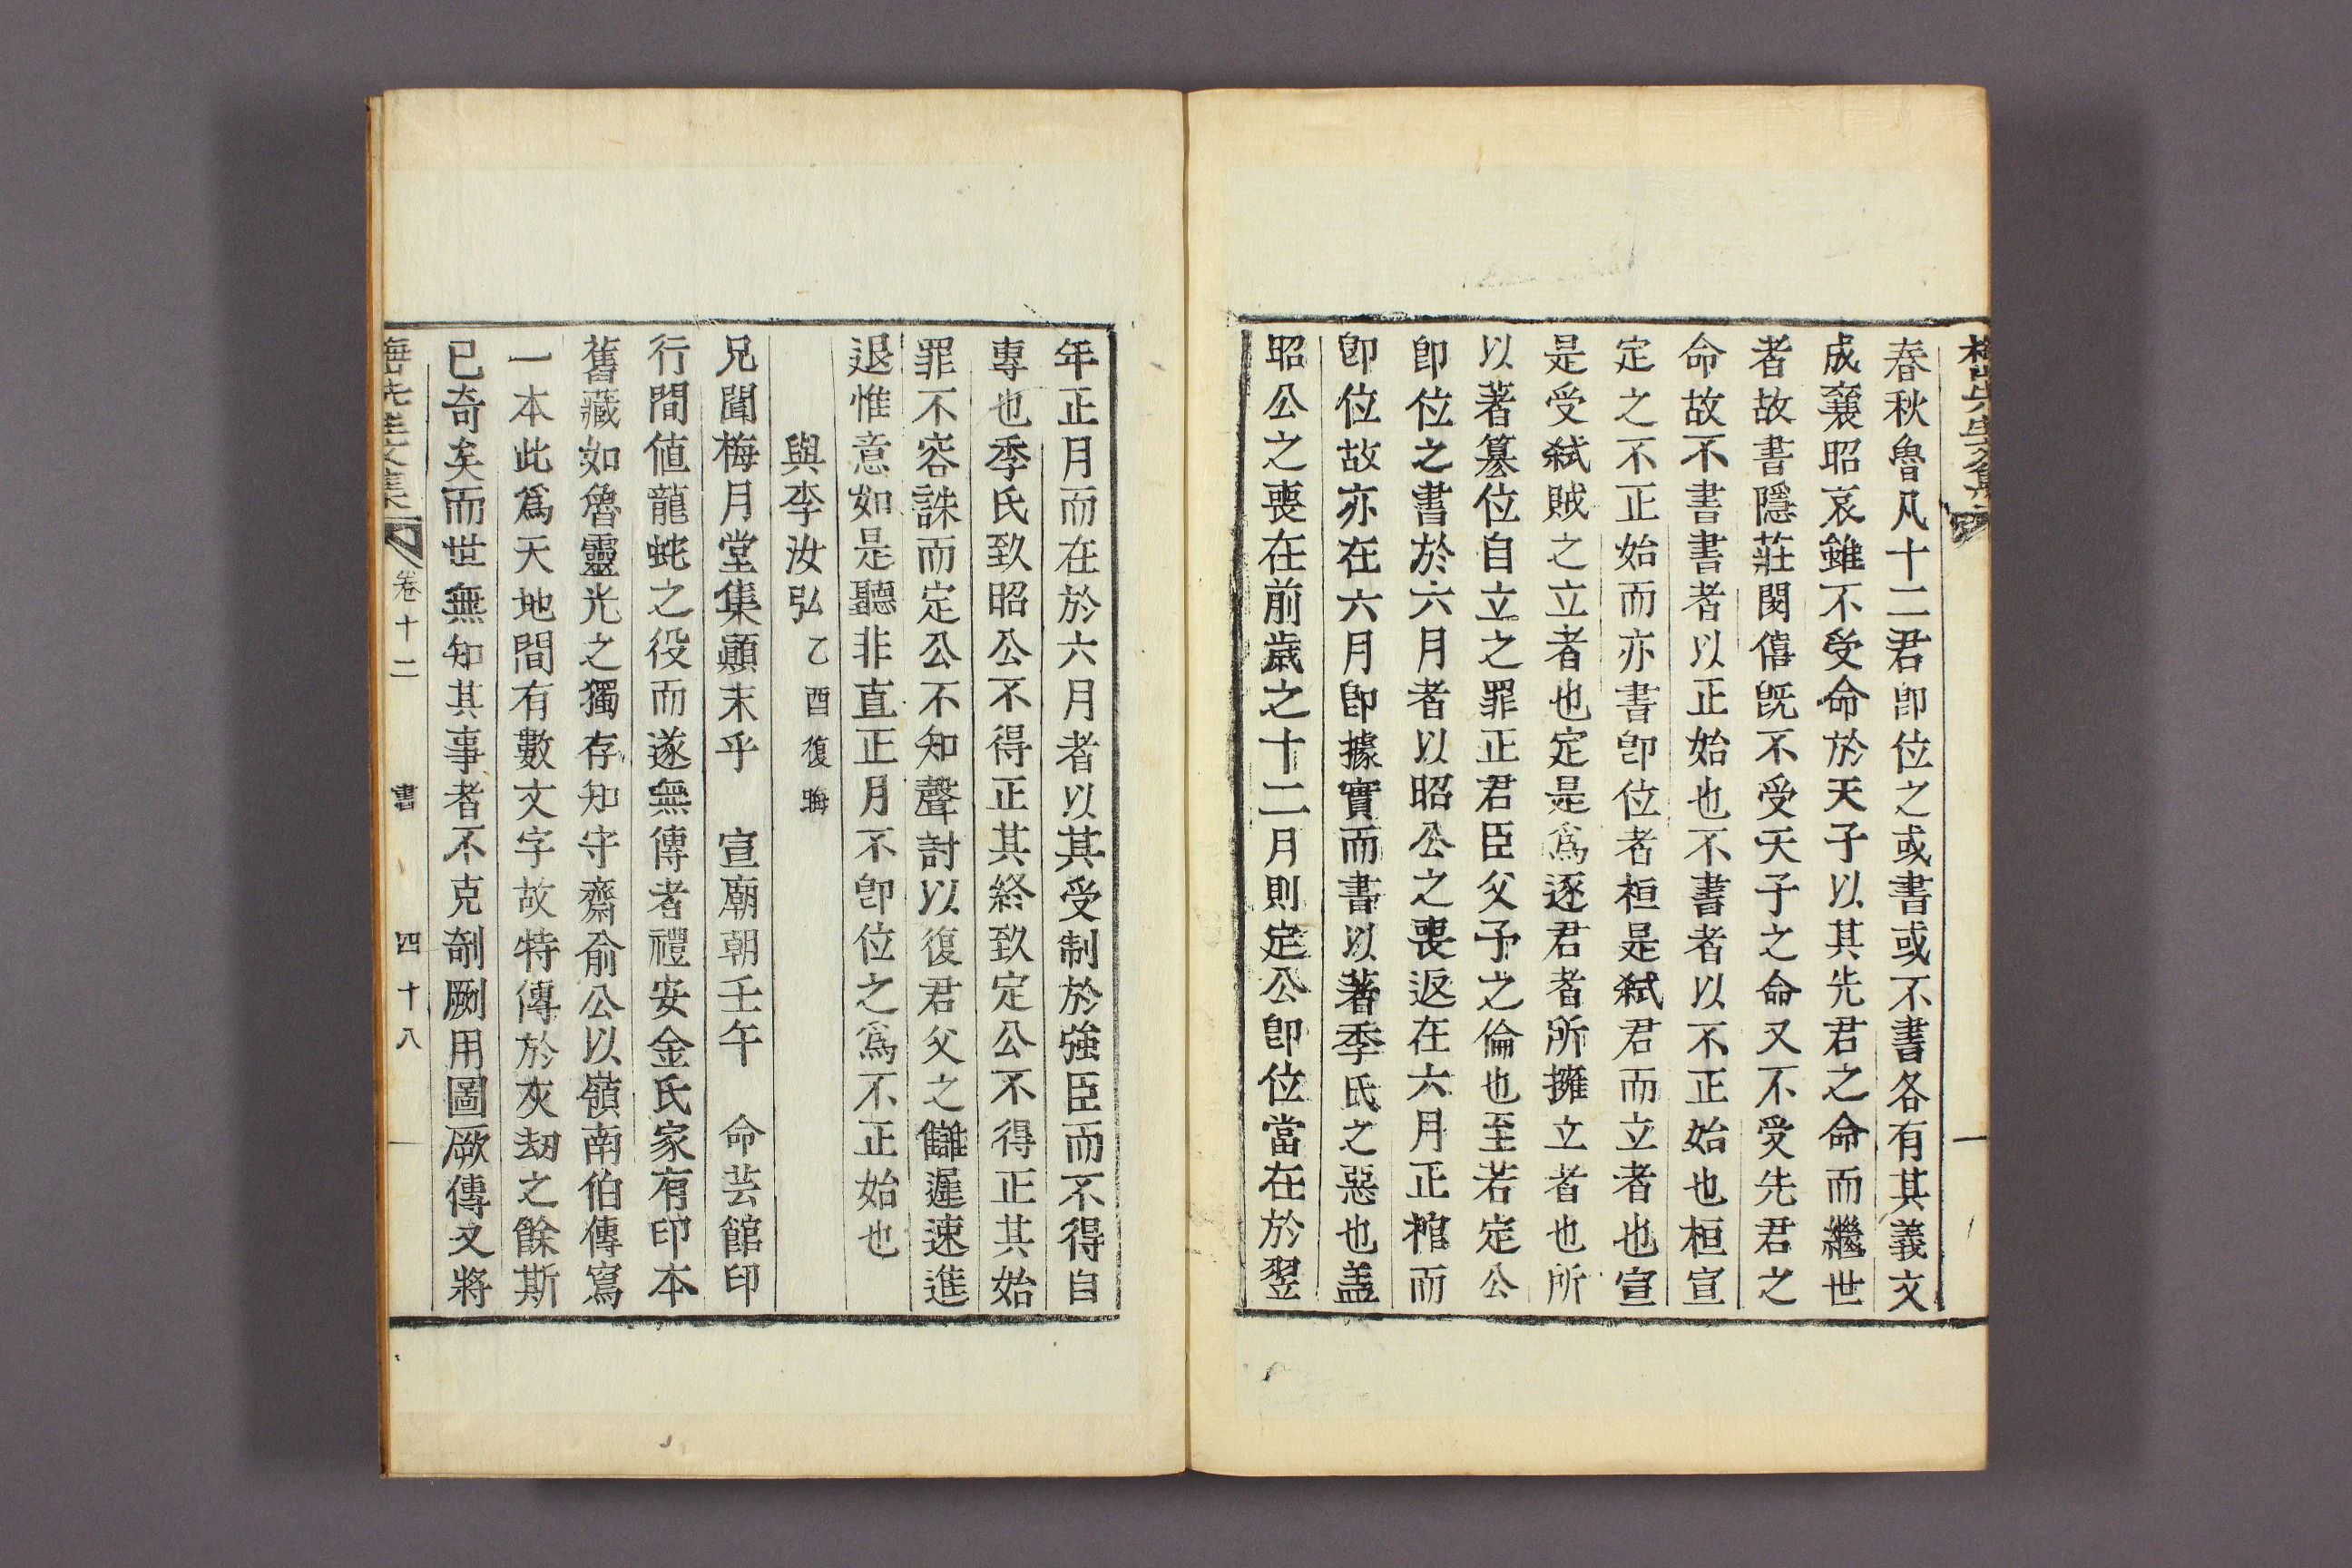 春秋魯凡十二君卽位之或書或不書各有其義文
成襄昭哀雖不受命於天子以其先君之命而繼世
者故書隱莊閔僖旣不受天子之命又不受先君之
命故不書書者以正始也不書者以不正始也桓宣
定之不正始而亦書卽位者桓是弑君而立者也宣
是受弑賊之立者也定是爲逐君者所擁立者也所
以著簒位自立之罪正君臣父子之倫也至若定公
卽位之書於六月者以昭公之喪返在六月正棺而
卽位故亦在六月卽據實而書以著季氏之惡也盖
昭公之喪在前歲之十二月則定公卽位當在於翌
年正月而在於六月者以其受制於強臣而不得自
專也季氏致昭公不得正其終致定公不得正其始
罪不容誅而定公不知聲討以復君父之讎遲速進
退惟意如是聽非直正月不卽位之爲不正始也
與李汝弘 乙酉復晦
兄聞梅月堂集顚末乎 宣廟朝壬午 命芸館印
行間値龍蛇之役而遂無傳者禮安金氏家有印本
舊藏如魯靈光之獨存知守齋兪公以嶺南伯傳寫
一本此爲天地間有數文字故特傳於灰刼之餘斯
已奇矣而世無知其事者不克剞劂用圖厥傳又將
卷十二 書 四十八